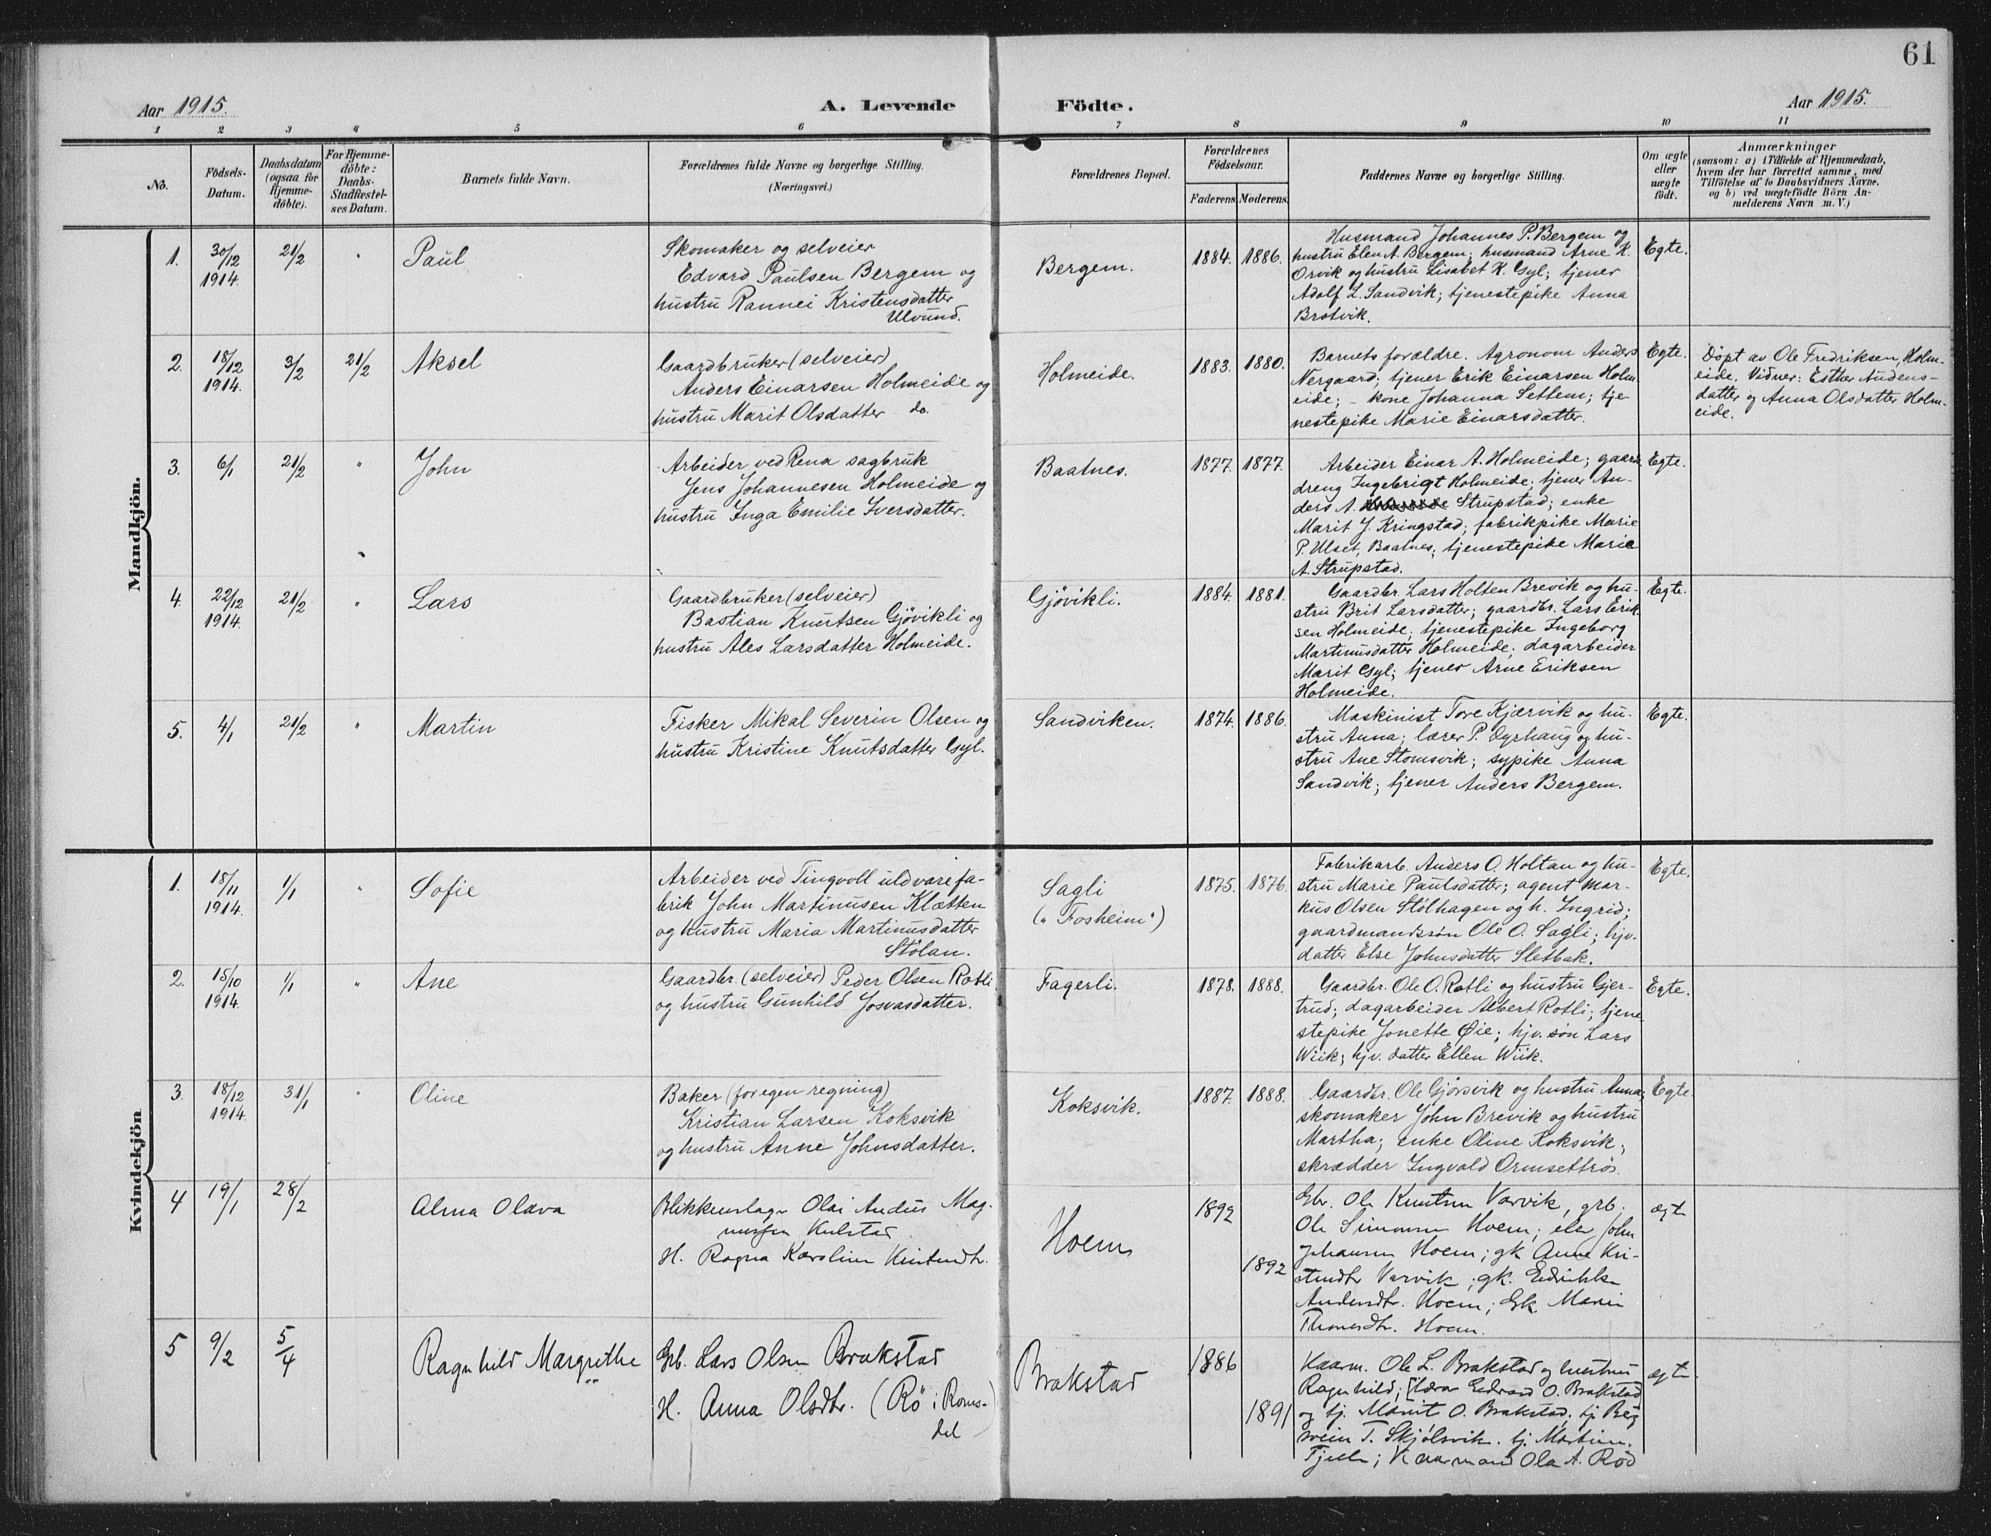 61
Aar 1915. A. Levende Födte. Aar 1915.
1 2 3 4 5 6 7 8 9 10 11
No.
Födsels-
Datum.
Daabsdatum
(ogsaa for
Hjemme-
döbte).
For Hjemme-
döbte:
Daabs-
Stadfestel-
ses Datum.
Barnets fulde Navn.
Forældrenes fulde Navne og borgerlige Stilling.
(Næringsvei.)
Forældrenes Bopæl.
Forældrenes
Födselsaar.
Faderens Moderens
Faddernes Navne og borgerlige Stilling.
Om ægte
eller
uægte
födt.
Anmærkninger
(saasom: a) i Tilfælde af Hjemmedaab,
hvem der har forrettet samme, med
Tilföielse af to Daabsvidners Navne,
og b) ved uægtefödte Börn An-
melderens Navn m. V.)
Mandkjön.
1.
30/12
1914.
21/2
"
Paul
Skomaker og selveier
Edvard Paulsen Bergem og
hustru Rannei Kristensdatter
Ulvund.
Bergem.
1884. 1886.
Husmand Johannes P. Bergem og
hustru Elen A. Bergem; husmand Arne K.
Orvik og hustru Lisabet K. Gyl; tjener
Adolf L. Sandvik; tjenestepike Anna
Brøtvik.
Egte.
2.
18/12
1914.
3/2
21/2
Aksel
Gaardbruker (selveier)
Anders Einarsen Holmeide og
hustru Marit Olsdatter do.
Holmeide.
1883. 1880.
Barnets forældre. Agronom Anders
Nergaard; tjener Erik Einarsen Holm-
eide; - kone Johanna Settem; tje-
nestepike Marie Einarsdatter.
Egte.
Døpt av Ole Fredriksen, Holm-
eide. Vidner: Esther Audens-
datter og Anna Olsdatter Holm-
eide.
3.
6/1
21/2
"
John
Arbeider ved Rena sagbruk
Jens Johannesen Holmeide og
hustru Inga Emilie Iversdatter.
Baatnes.
1877. 1877.
Arbeider Einar A. Holmeide; gaard-
dreng Ingebrigt Holmeide; tjener An-
ders A. Strupstad; enke
Marit J. Kringstad; fabrikpike Marie
P. Ulset, Baatnes; tjenestepike Marie
A. Strupstad.
Egte.
4.
22/12
1914.
21/2
"
Lars
Gaardbruker (selveier)
Bastian Knutsen Gjøvikli og
hustru Ales Larsdatter Holmeide.
Gjøvikli.
1884. 1881.
Gaardbr. Lars Holten Brevik og hu-
stru Brit Larsdatter; gaardbr. Lars Erik-
sen Holmeide; tjenestepike Ingeborg
Martinusdatter Holmeide; dagarbeider
Marit Gyl; tjener Arne Eriksen
Holmeide.
Egte.
5.
4/1
21/2
"
Martin
Fisker Mikal Severin Olsen og
hustru Kristine Knutsdatter Gyl.
Sandviken.
1874. 1886.
Maskinist Tore Kjærvik og hu-
stru Anna; lærer P. Øyrhaug og hu-
stru Ane Stomsvik; sypike Anna
Sandvik; tjener Anders Bergem.
Egte.
Kvindekjön
1.
18/11
1914.
1/1
"
Sofie
Arbeider ved Tingvoll uldvarefa-
brik John Martinusen Klætten
og hustru Maria Martinusdatter
Stølan.
Sagli
("Fosheim")
1875. 1876.
Fabrikarb. Anders O. Holtan og hu-
stru Marie Paulsdatter; agent Mar-
kus Olsen Stølhagen og h. Ingrid;
gaardmandssøn Ole O. Sagli; hjv.
datter Else Johnsdatter Sletbak.
Egte.
2.
15/10
1914.
1/1
"
Ane
Gaardbr. (selveier) Peder Olsen Rotli
og hustru Gunhild Josvasdatter.
Fagerli.
1878. 1888.
Gaardbr. Ole O. Rotli og hustru Gjer-
trud; dagarbeider Albert Rotli; tjene-
stepike Jonette Øie; hjv. søn Lars
Wiik; hjv. datter Ellen Wiik.
Egte.
3.
18/12
1914.
31/1
"
Oline
Baker (for egen regning)
Kristian Larsen Koksvik
og hustru Anne Johnsdatter.
Koksvik.
1887. 1888.
Gaardbr. Ole Gjøvsvik og hustru Anna;
skomaker John Brevik og hustru
Martha; enke Oline Koksvik;
skrædder Ingvald Ormsettrø.
Egte.
4
19/1
28/2
Alma Olava
Blikkenslager Olai Andus Mag-
nussen
H. Ragna Karoline
Hoem
1892
1892
Gbr. Ole Knutsen Varvik, grb.
Ole Simonsen Hoem; elev John
Johansen Hoem; gk Anne Kri-
stensdtr Varvik; gk.
Andersdtr. Hoem; Gk. Marie
Thomasdtr. Hoem.
ægte
5
9/2
5/4
Ragnhild Margrethe
Grb. Lars Olsen Brakstad
H. Anna Olsdtr. (Rö i Roms-
dal
Brakstad
1886
1891
Kaarm. Ole L. Brakstad og hustru
Ragnhild; Edvard O. Brakstad
og tj. Marit O. Brakstad; tj Berg
svein T. Skjølsvik. tj. Martin
Fjelle; Kaarmand Ola A. Röd
ægte